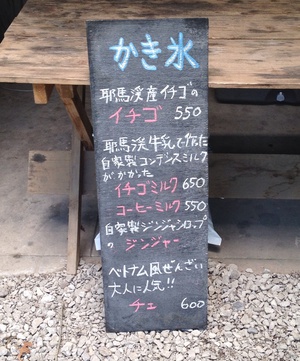 かき氷
耶馬渓産イチゴの
イチゴ 550
耶馬渓牛乳で作った
自家製コンデンスミルク
がかかった
イチゴミルク 650
コーヒーミルク 550
自家製ジンジャシロップ
の ジンジャー
ベトナム風ぜんざい
大人に人気!!
チェ 600